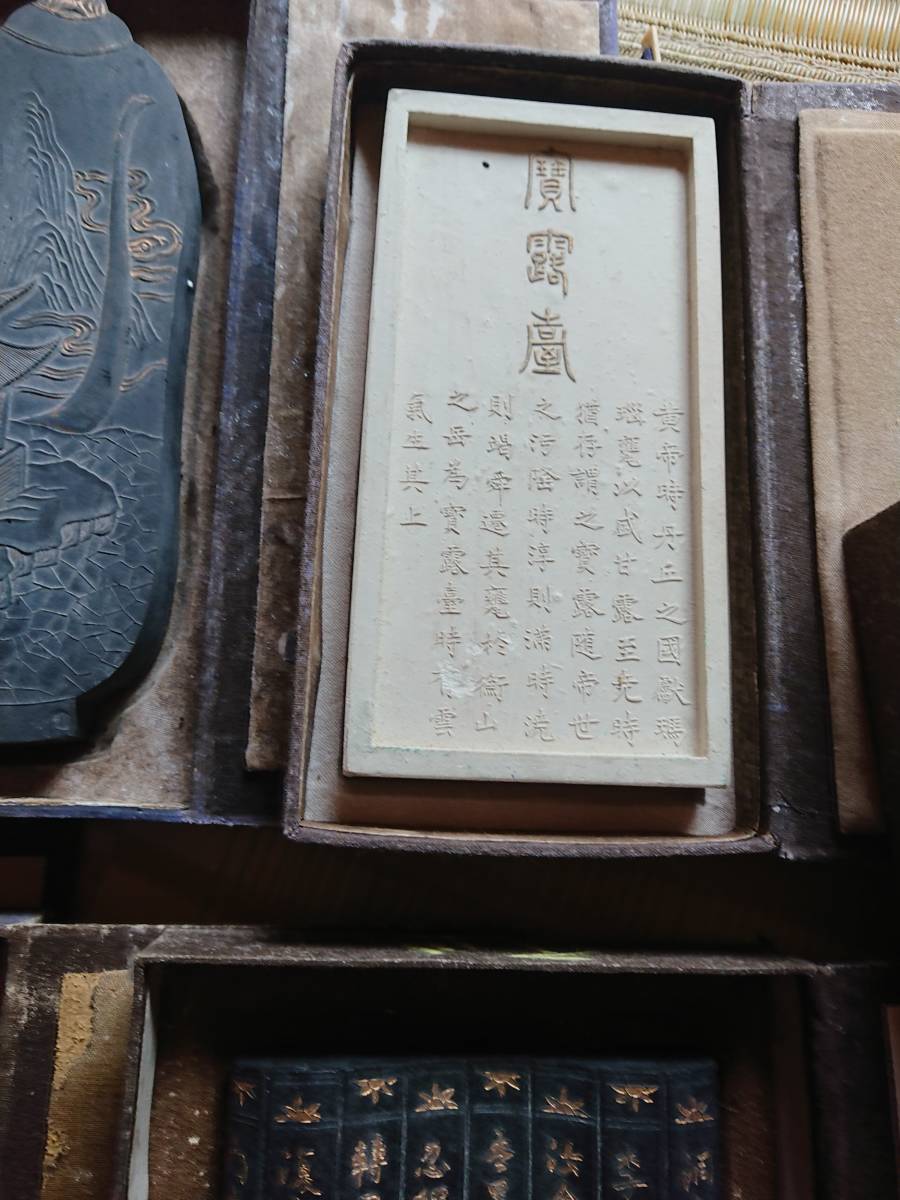 寶露臺
黄帝時丹丘之國獻瑪
瑙甕以盛甘露至尭時
猶存謂之寶露隨帝世
之污隆時淳則滿時澆
則竭舜遷其甕於衡山
之岳為寶露臺時有雲
氣生其上
漢
轉
忍
汝
李